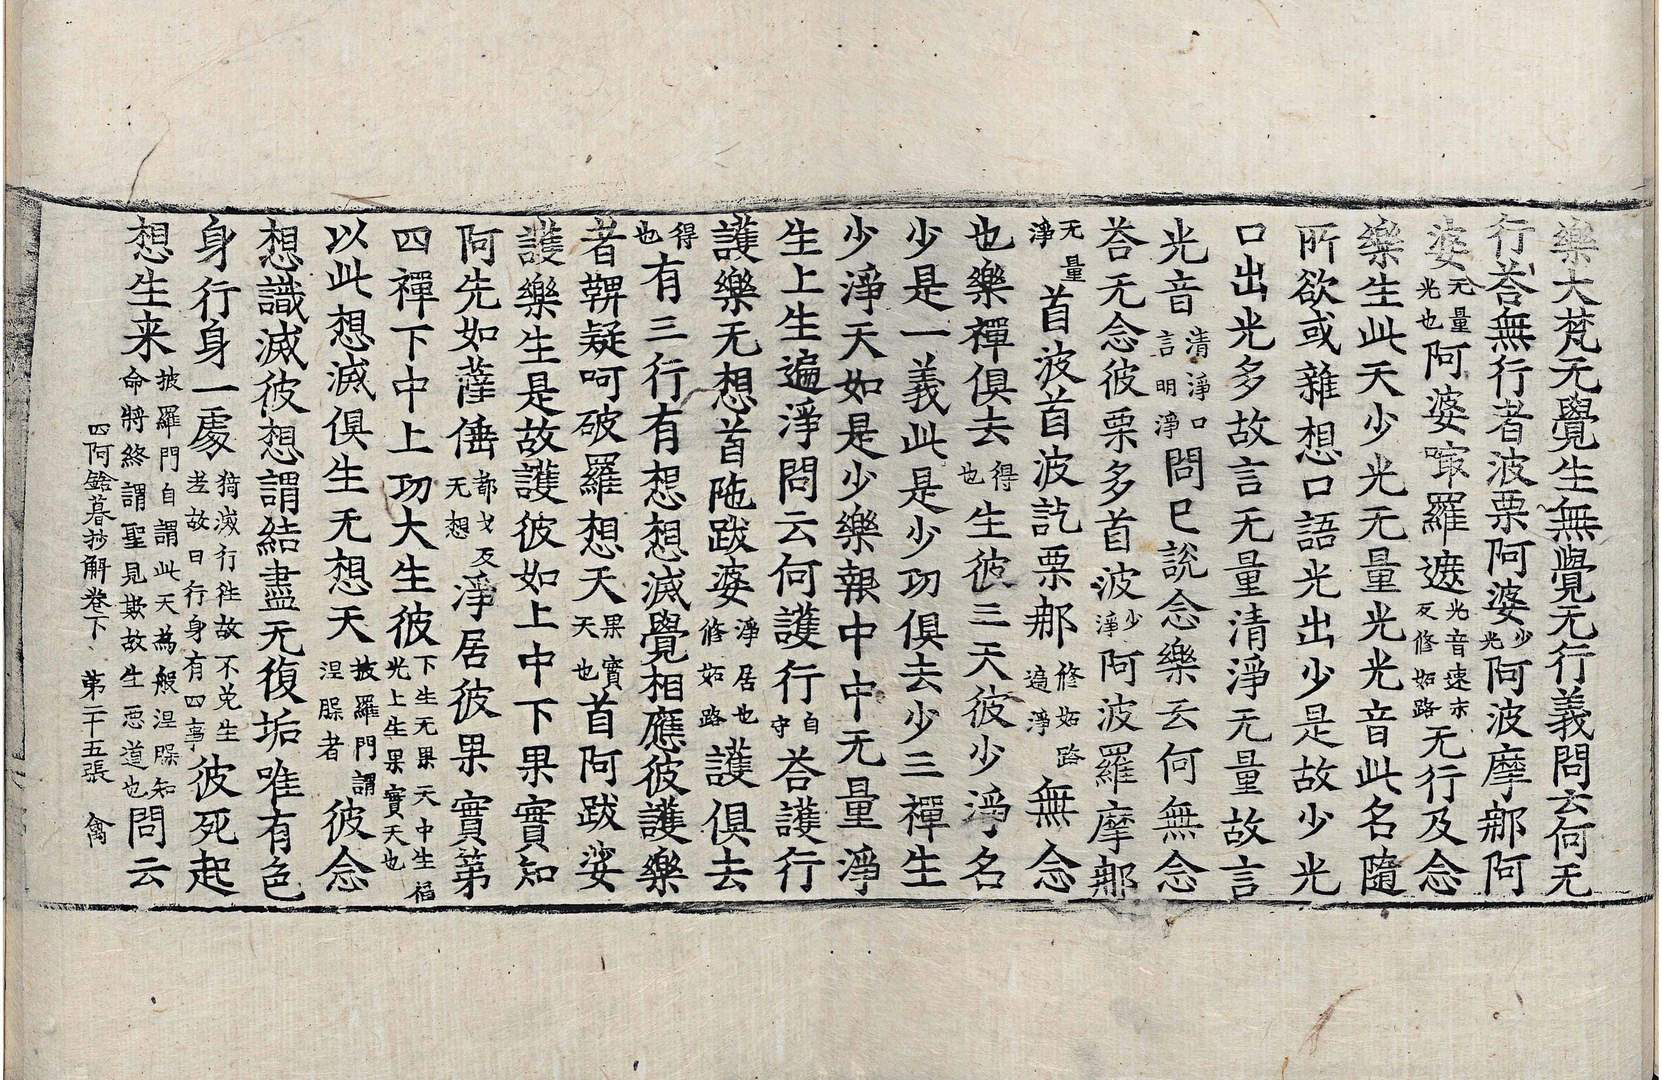 樂大梵无覺生無覺无行義問云何无
行荅無行者波栗阿婆少光阿波摩那阿
婆无量光也阿婆㗚羅遮光音速末反修妬路无行及念
樂生此天少光无量光光音此名隨
所欲或雜想口語光出少是故少光
口出光多故言无量清淨无量故言
光音清淨口言明淨問已說念樂云何無念
荅无念彼栗多首波少淨阿波羅摩那
无量淨首波首波訖栗那修妬路遍淨無念
也樂禪俱去得也生彼三天彼少淨名
少是一義此是少功俱去少三禪生
少淨天如是少樂報中中无量淨
生上生遍淨問云何護行自守荅護行
護樂无想首陁跋婆淨居也修妬路護俱去
得也有三行有想想滅覺相應彼護樂
者鞞疑呵破羅想天果實天也首阿跋娑
護樂生是故護彼如上中下果實知
阿先如薩倕都戈反无想淨居彼果實第
四禪下中上功大生彼下生无果天中生福光上生果實天也
以此想滅俱生无想天披羅門謂涅槃者彼念
想識滅彼想謂結盡无復垢唯有色
身行身一處猗滅行往故不免生老故曰行身有四事彼死起
想生来披羅門自謂此天為般涅槃知命將終謂聖見欺故生惡道也問云
四阿鋡暮抄解卷下　第二十五張　禽